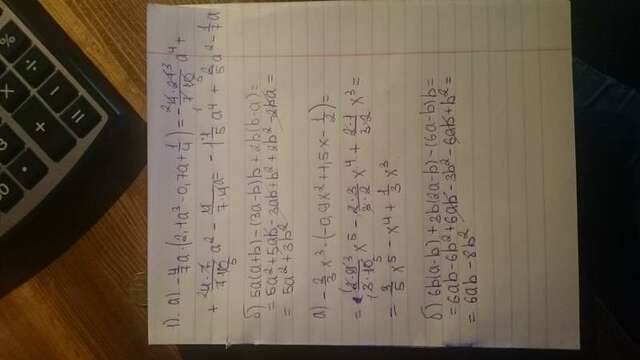 1). а) -4/7a·(2,1a³-0,7a+1/4)= -4·21/7·10 a⁴+
+ 4·7/7·10 a² - 4/7·4 a= -1 1/5 a⁴ + 2/5 a² - 1/7 a
б) 5a(a+b)-(3a-b)b+2b(b-a)=
= 5a²+5ab-3ab+b²+2b²-2ba=
= 5a²+3b²
а) -2/3 x³·(-0,9x²+1,5x-1/2)=
= 2·9/3·10 x⁵ - 2·3/3·2 x⁴ + 2·1/3·2 x³=
= 3/5 x⁵ - x⁴ + 1/3 x³
б) 6b(a-b)+3b(2a-b)-(6a-b)b=
= 6ab-6b²+6ab-3b²-6ab+b²=
= 6ab-8b²